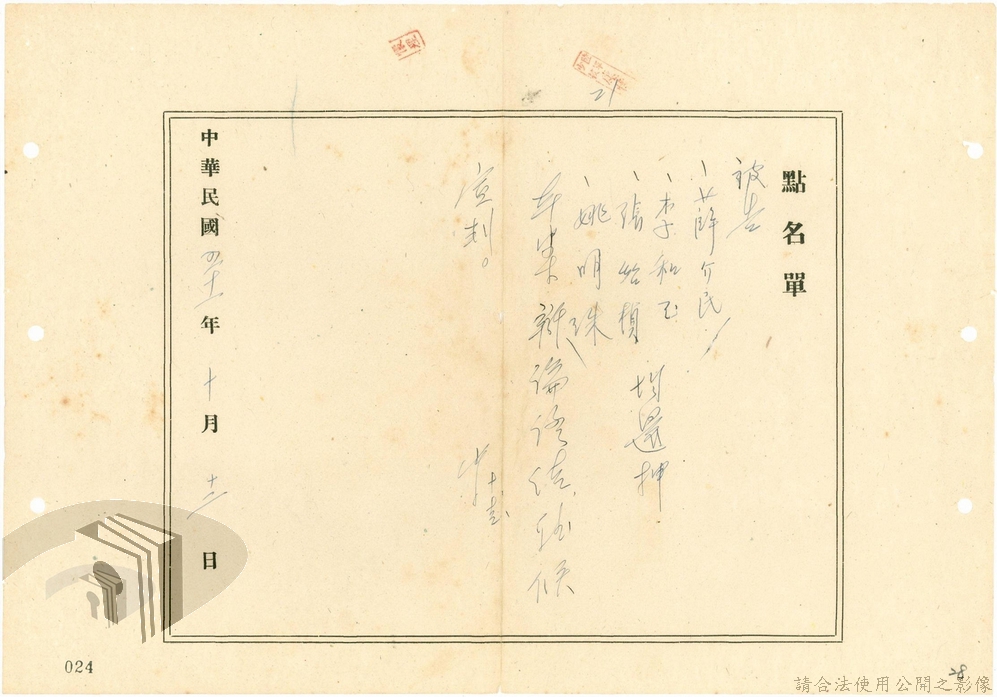 點名單
被告
、薛介民
、李和玉
、張為禎 均還押
、姚明珠
本案辯論終結，聽候
宣判。
中華民國四十一年十月十二日
27
024
28
請合法使用公開之影像